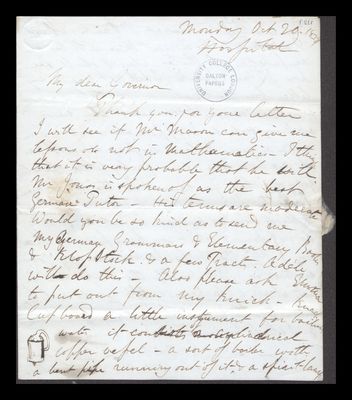 Monday Oct 20.
Hospital
UNIVERSITY COLLEGE LONDON
GALTON
PAPERS
My dear Governor
Thank you for your letter
I will see if Mr Mason can give me
lessons or not in Mathematics - I think
that it is very probable that he will.
Mr Jones is spoken of as the best
German Tutor - His terms are moderate
Would you be so kind as to send me
my German Grammars & Elementary Books
& Klopstock & a few Tracts. Adèle
will do this - Also please ask
to put out from my knick-knack
Cupboard a little instrument for boiling
water it consists,
copper vessel - a sort of boiler with
a bent pipe running out of it & a spirit lamp